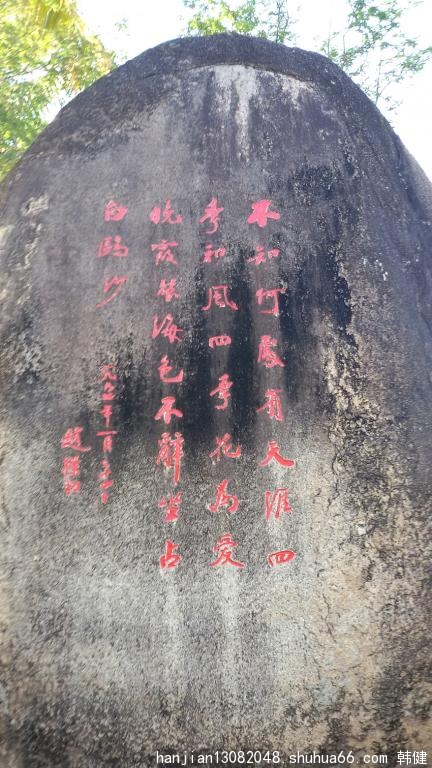 不知何處有天涯四
季和風四季花為愛
晚霞餐海色不辭坐占
白鷗沙
趙樸初
hanjian13082048.shuhua66.com 韩健